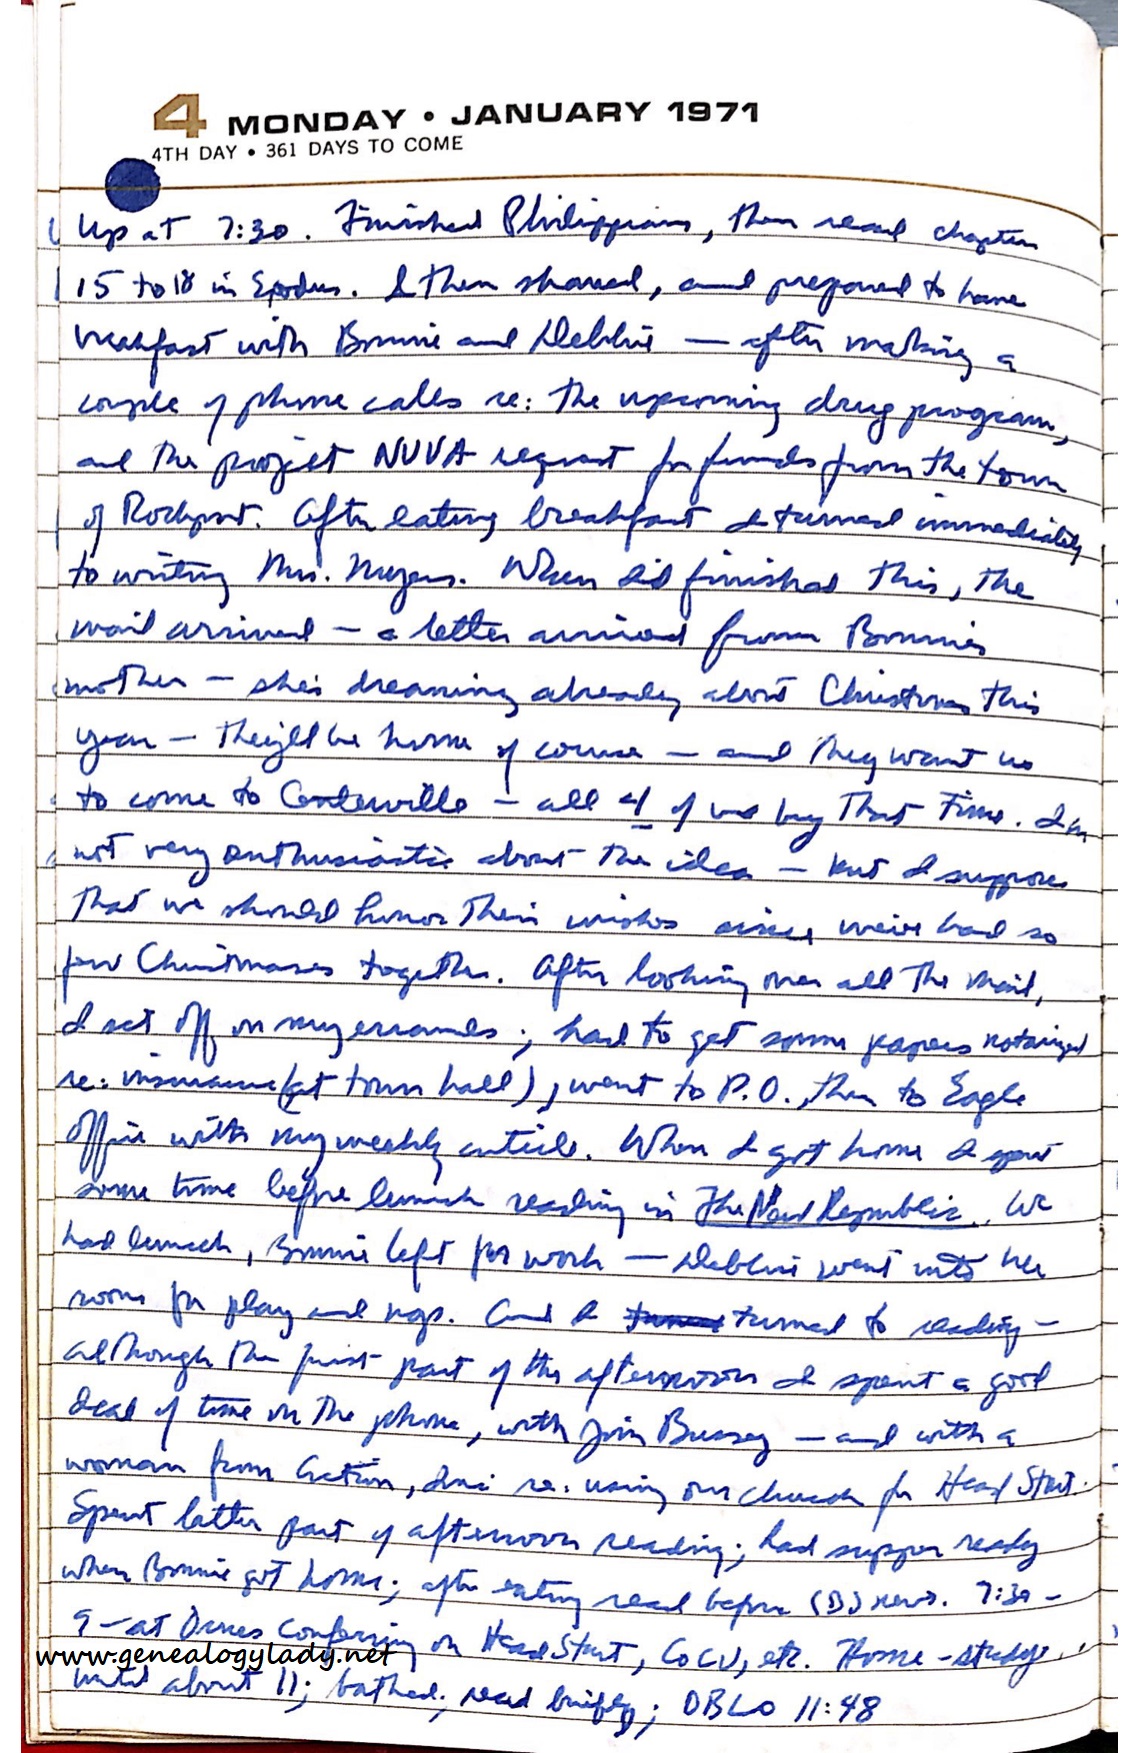 4 MONDAY • JANUARY 1971
4TH DAY • 361 DAYS TO COME
Up at 7:30. Finished Philippians, then read chapters
15 to 18 in Exodus. I then shaved, and prepared to have
breakfast with Bonnie and Debbie — after making a
couple of phone calls re: the upcoming drug program,
and the project NUVA request for funds from the town
of Rockport. After eating breakfast I turned immediately
to writing Mrs. Myers. When I'd finished this, the
mail arrived — a letter arrived from Bonnie's
mother — she's dreaming already about Christmas this
year — they'll be home of course — and they want us
to come to Centerville — all 4 of us by that time. I'm
not very enthusiastic about the idea — but I suppose
that we should honor their wishes since we've had so
few Christmases together. After looking over all the mail,
I set off on my errands; had to get some papers notarized
re: insurance (at town hall), went to P.O., then to Eagle
office with my weekly article. When I got home I spent
some time before lunch reading in The New Republic. We
had lunch, Bonnie left for work — Debbie went into her
room for play and naps. And I turned to reading —
although the first part of the afternoon I spent a good
deal of time on the phone, with Jim Bussey — and with a
woman from Action, Inc. re: using our church for Head Start.
Spent latter part of afternoon reading; had supper ready
when Bonnie got home; after eating read before (B) news. 7:30 -
9 — at conferring on Head Start, COCU, etc. Home - study
until about 11; bathed; read briefly; DBLO 11:48
www.genealogylady.net